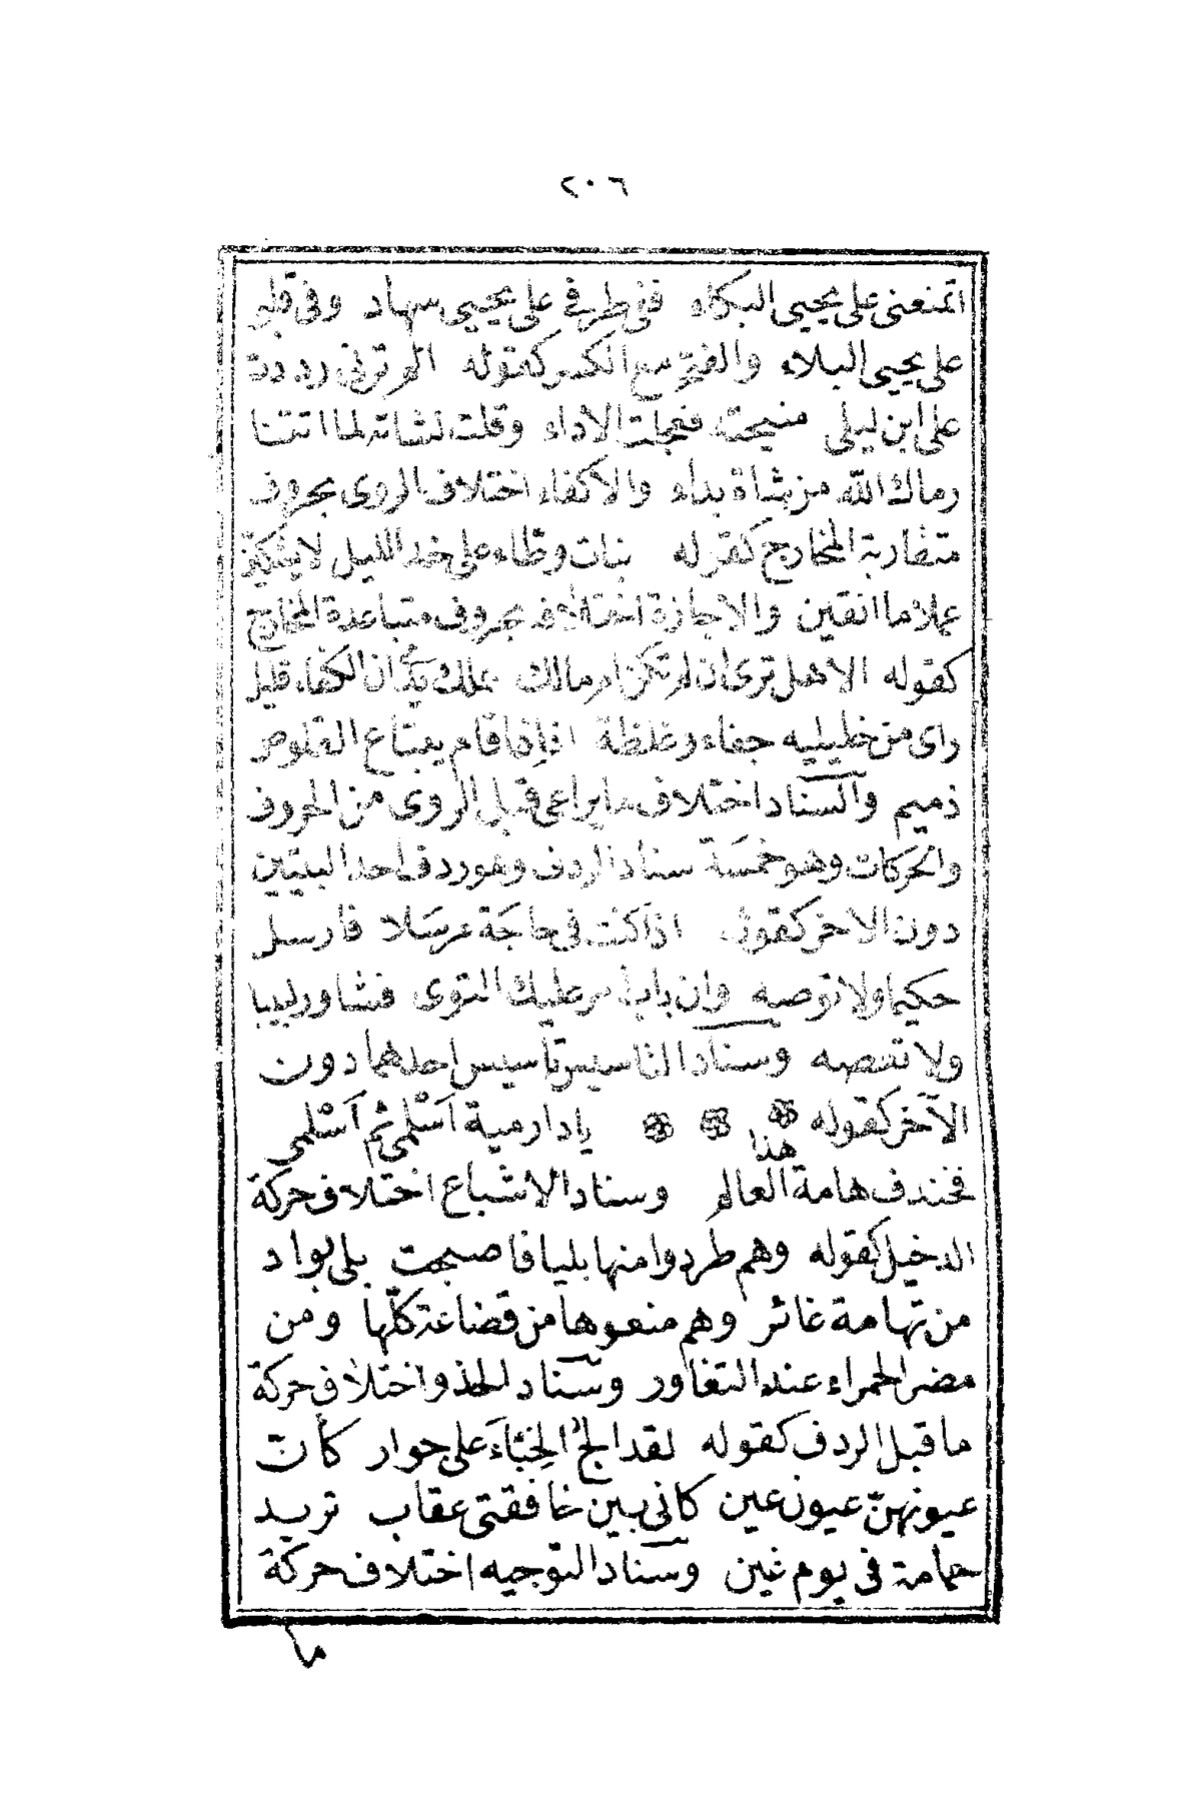 ٢٠٦
اتمنعنى على يحيى البكاء ففى طرفى على يحيى سهاد وفى قلبى
على يحيى البلاء والفتح مع الكسر كقوله الم ترنى رددت
على ابن ليلى منيحته فعجلت الاداء وقلت لشاته لما اتتنا
رماك الله من شاة بداء والاكفاء اختلاف الروى بحروف
متقاربة المخارج كقوله بنات وطاء على خد الليل لا يشكين
عملا ما انقين والاجازة اختلافه بحروف متباعدة المخارج
كقوله الاهل ترى ان لم تكن ام مالك بملك يدى ان الكفاء قليل
راى من خليليه جفاء وغلظة اذا قام يبتاع القلوص
ذميم والسناد اختلاف ما يراعى قبل الروى من الحروف
والحركات وهو خمسة سناد الردف وهو ردف احد البيتين
دون الاخر كقوله اذا كنت فى حاجة مرسلا فارسل
حكيما ولا توصه وان باب امر عليك التوى فشاور لبيبا
ولا تعصه وسناد التاسيس تاسيس احدهما دون
الآخر كقوله يا دارمية اسْلمى ثم اَسْلمى
فخندف هامة هذا العالم وسناد الاشباع اختلاف حركة
الدخيل كقوله وهم طردوا منها بليا فاصبحت بلى بواد
من تهامة غائر وهم منعوها من قضاعة كلّها ومن
مضر الحمراء عند التغاور وسناد الحذو اختلاف حركة
ما قبل الردف كقوله لقد الج الخِبَاَء على جوار كأنّ
عيونهنّ عيون عين كانى بين خافقتى عقاب تريد
حمامة فى يوم غين وسناد التوجيه اختلاف حركة
ما